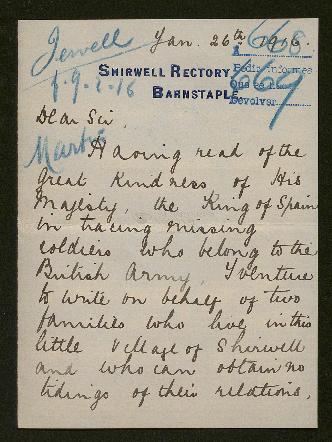 Jewell
Jan. 26th, 1916.
668
669
SHIRWELL RECTORY
BARNSTAPLE
Pedir informes
Devolver.
Dear Sir,
Martin
Having read of the
great kindness of His
Majesty, the King of Spain
in tracing missing
soldiers who belong to the
British Army, I venture
to write on behalf of two
families who live in this
little village of Shirwell
and who can obtain no
tidings of their relations.